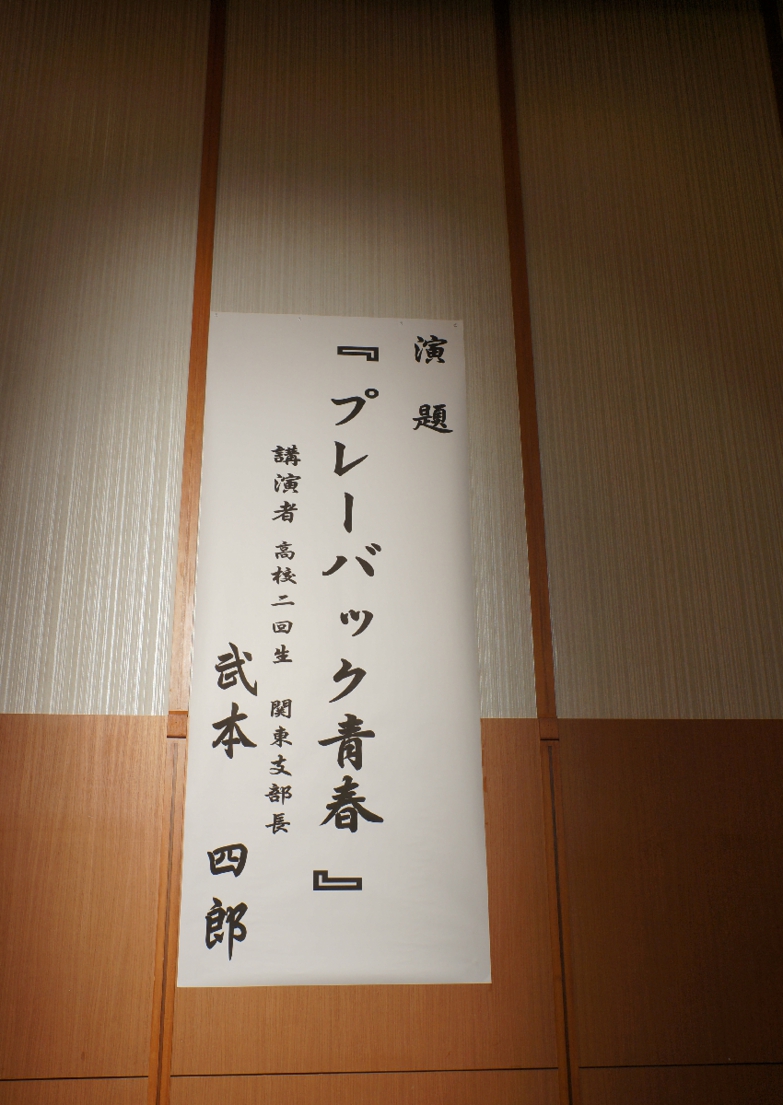 演題
『プレーバック青春』
講演者 高校二回生 関東支部長
武本 四郎